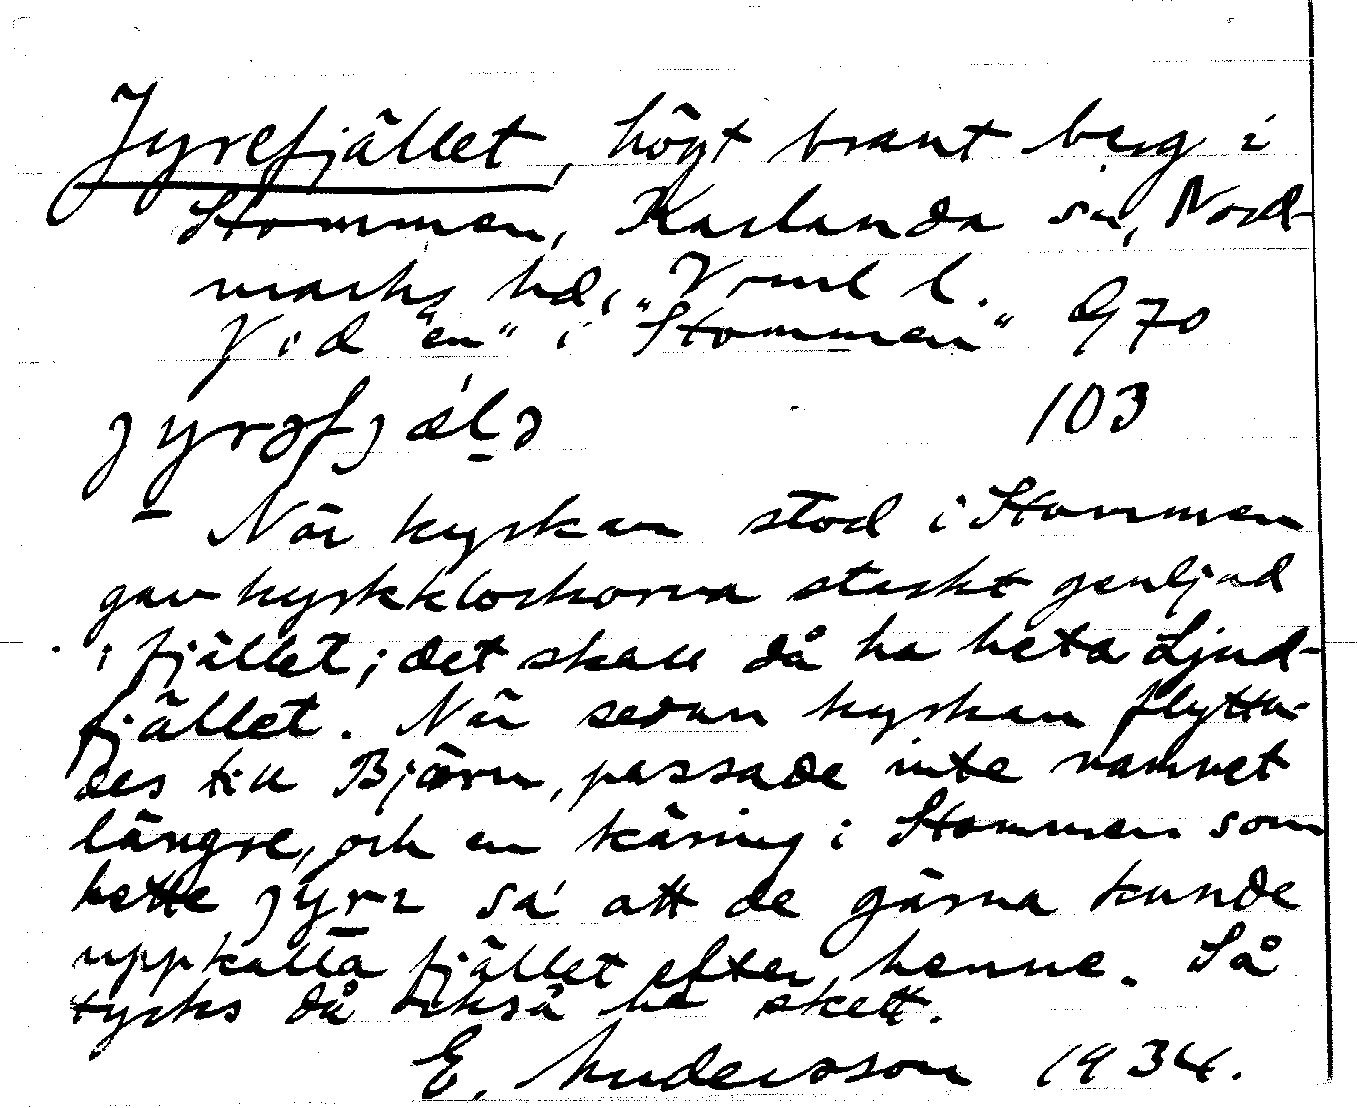 Jyrefjället, högt brant berg i
Stommen, Karlanda sn, Nord-
marks hd, Vrml l.
Vid "en" i "Stommen" G 70
jyrəfjälə 103
- När kyrkan stod i Stommen
gav kyrkklockorna starkt genljud
i fjället; det skall då ha heta Ljud-
fjället. När sedan kyrkan flytta-
des till Bjärn, passade inte namnet
längre, och en käring i Stommen som
hette jyrɩ sa' att de gärna kunde
uppkalla fjället efter henne. Så
tycks då också ha skett.
E. Andersson 1934.